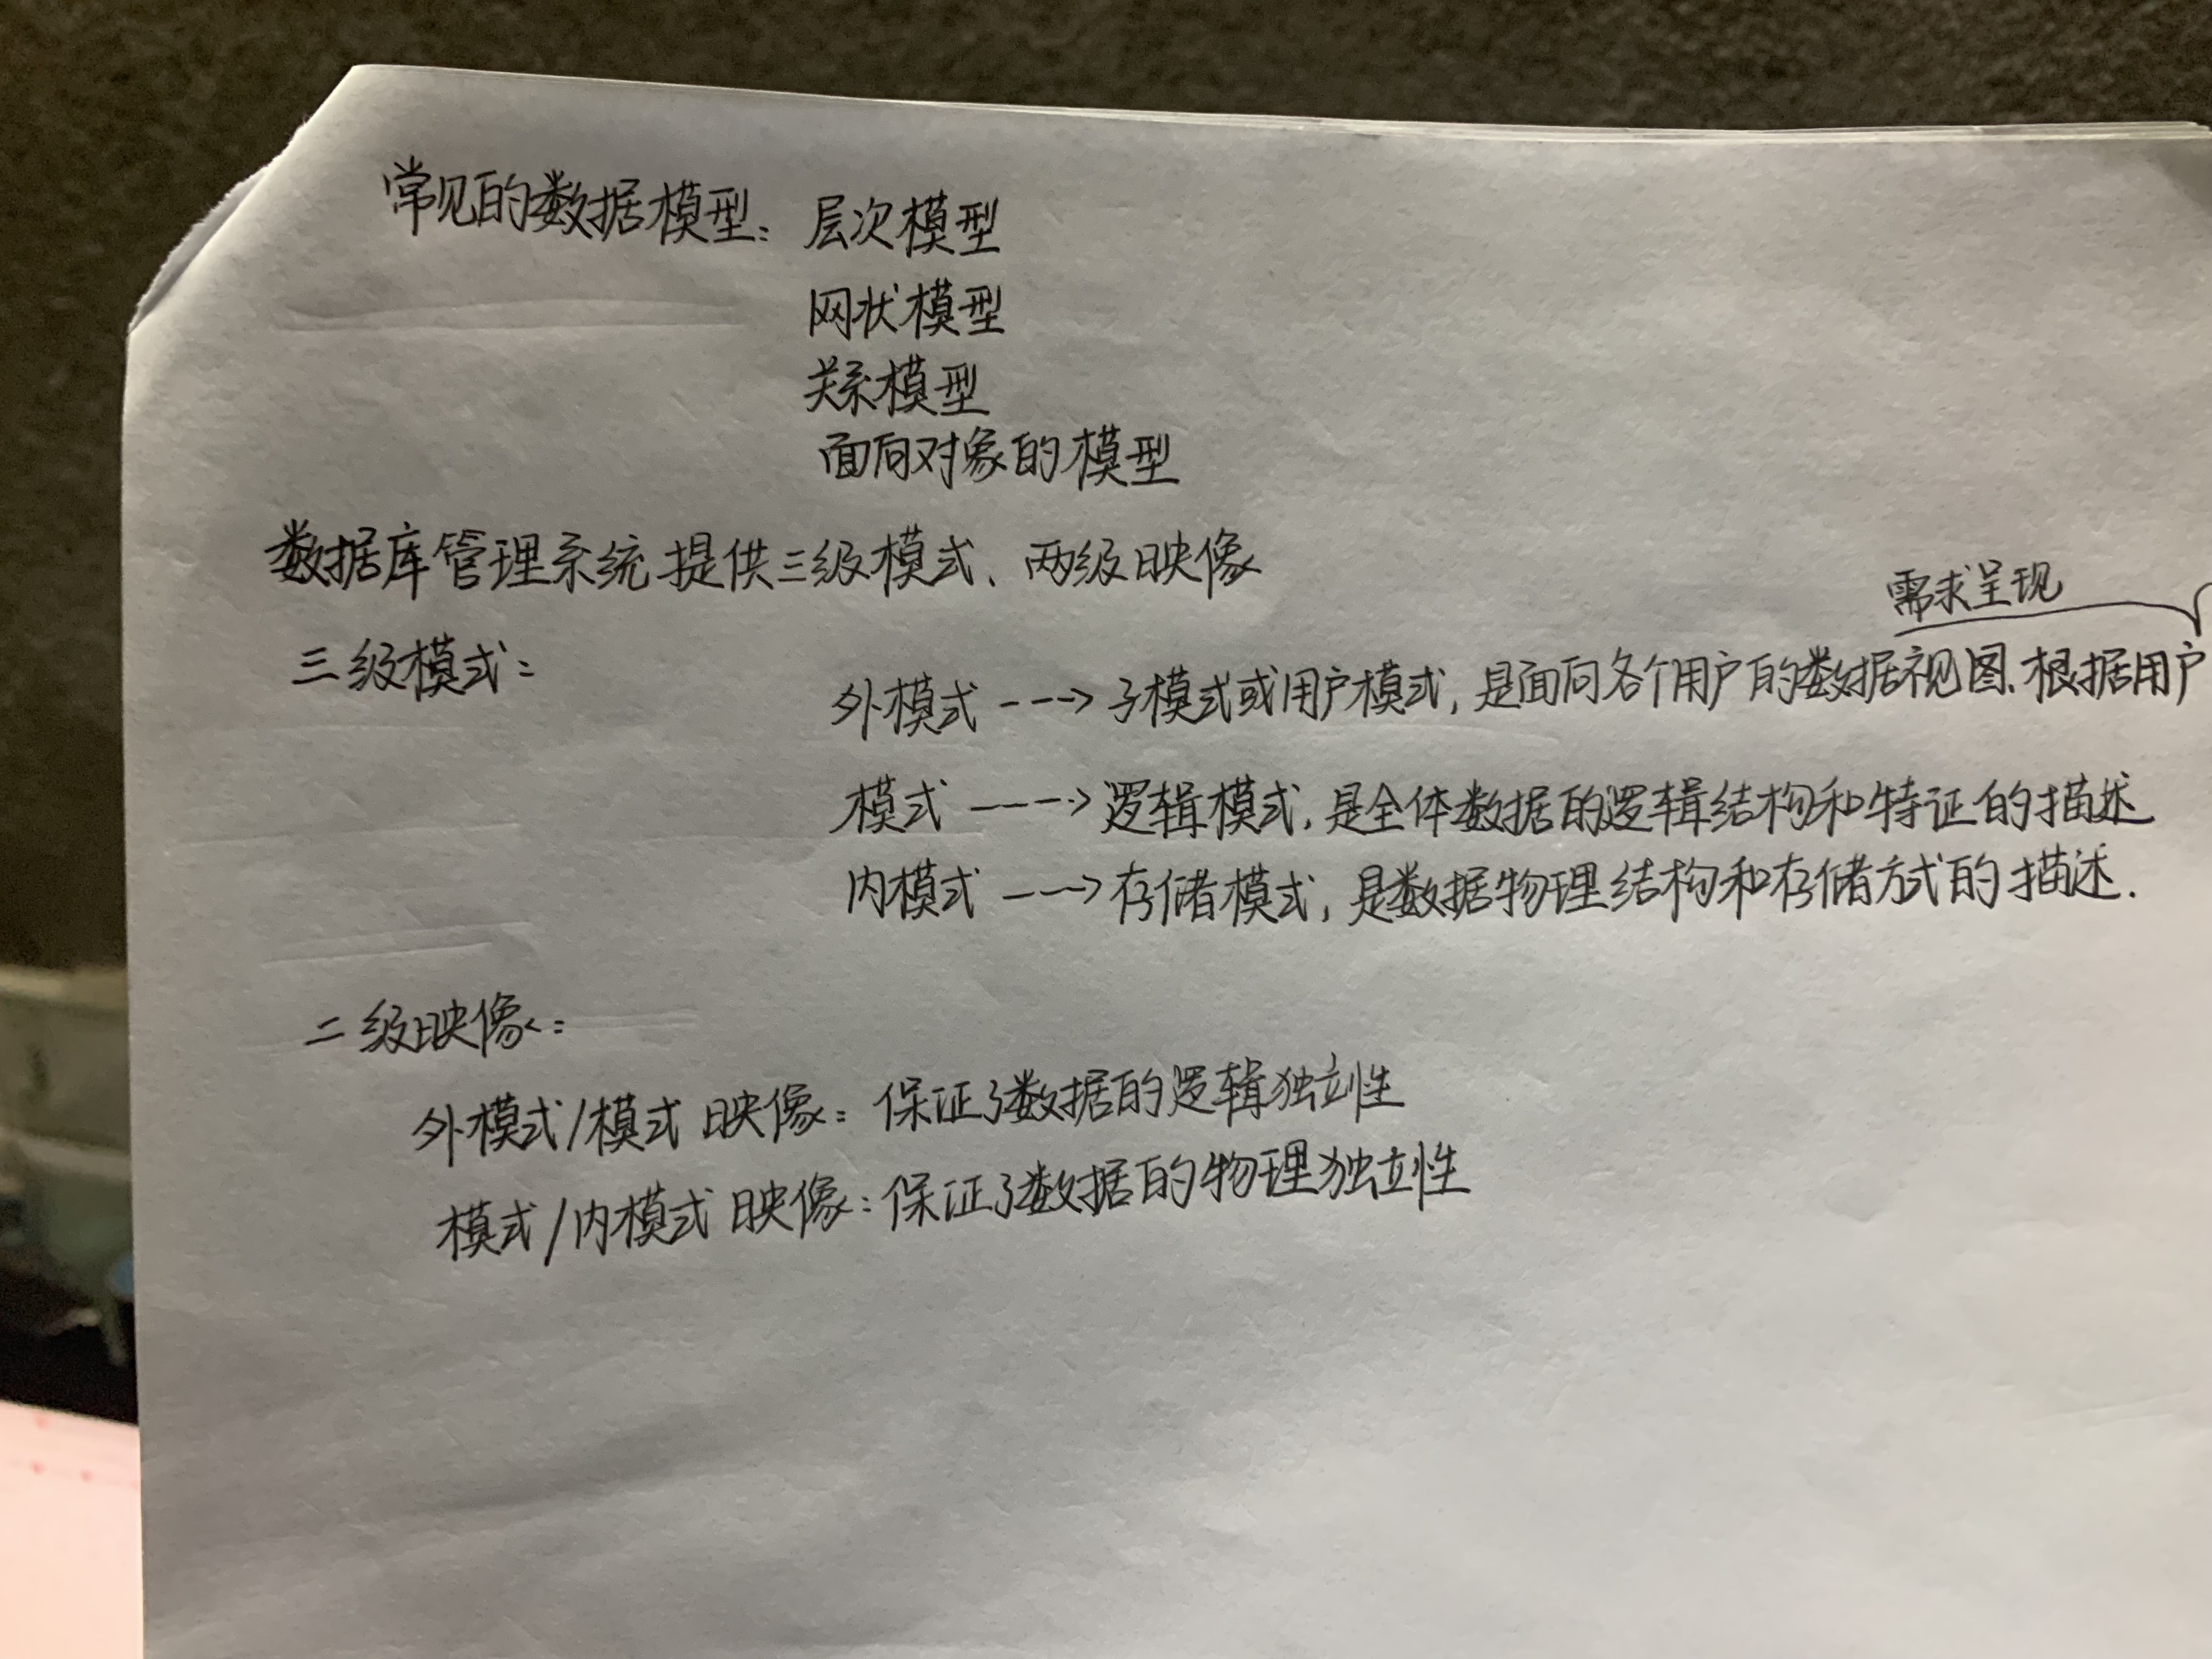 常见的数据模型: 层次模型
网状模型
关系模型
面向对象的模型
数据库管理系统提供三级模式、两级映像
需求呈现
三级模式:
外模式 ---> 子模式或用户模式, 是面向各个用户的数据视图.根据用户
模式 ---> 逻辑模式, 是全体数据的逻辑结构和特证的描述
内模式 ---> 存储模式, 是数据物理结构和存储方式的描述.
二级映像:
外模式/模式 映像: 保证了数据的逻辑独立性
模式/内模式 映像: 保证了数据的物理独立性